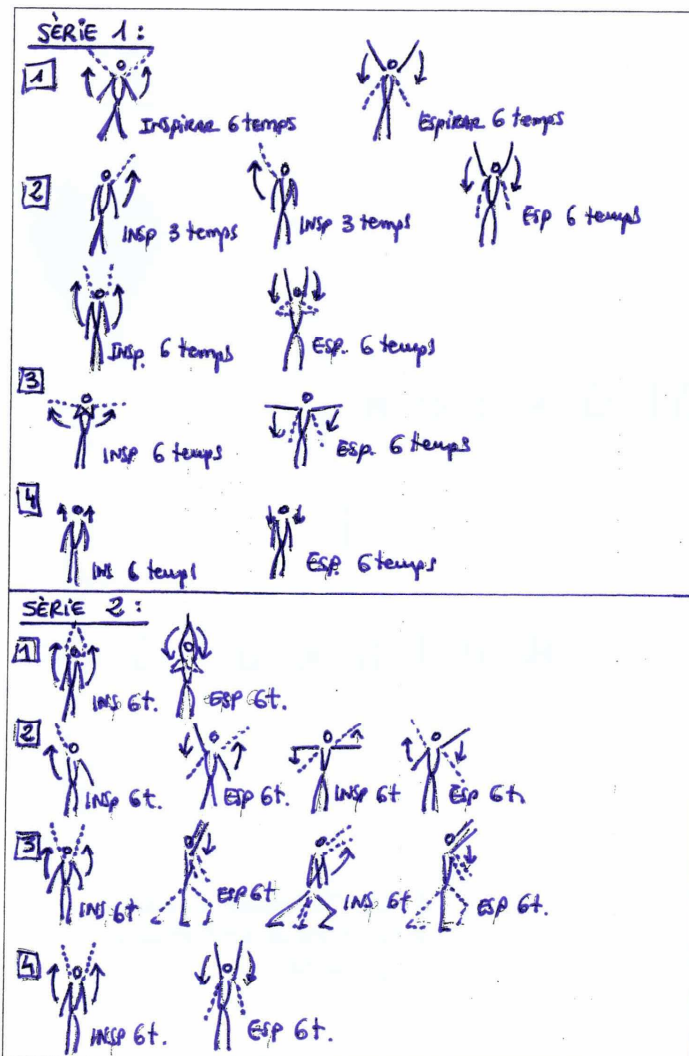 SÈRIE 1:
1 INSPIRAR 6 temps ESPIRAR 6 temps
2 INSP 3 temps INSP 3 temps ESP 6 temps
INSP. 6 temps ESP. 6 temps
3 INSP 6 temps ESP. 6 temps
4 INS 6 temps ESP. 6 temps
SÈRIE 2:
1 INS 6t. ESP 6t.
2 INSP 6t. ESP 6t. INSP 6t ESP 6t.
3 INS 6t ESP 6t INS 6t ESP 6t.
4 INSP 6t. ESP 6t.